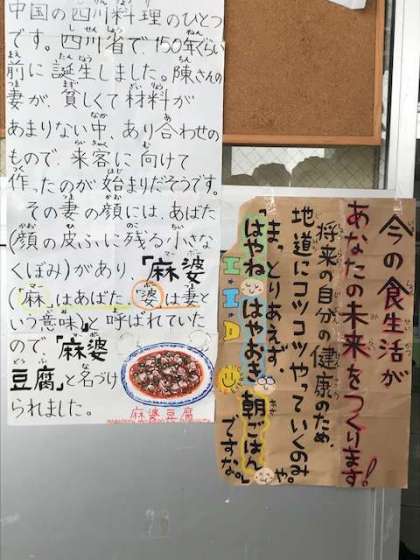 中国の四川料理のひとつ
です。四川省で、150年ぐらい
前に誕生しました。陳さんの
妻が、貧しくて材料が
あまりない中、あり合わせの
もので、来客に向けて
作ったのが始まりだそうです。
その妻の顔には、あばた
(顔の皮ふに残る小さな
くぼみ)があり、「麻婆
(「麻」はあばた、「婆」は妻と
いう意味)」と呼ばれていた
ので、「麻婆
豆腐」と名づけ
られました。
麻婆豆腐
今の食生活が
あなたの未来をつくります!
将来の自分の健康のため、
地道にコツコツやっていくのみや。
ま、とりあえず、
「はやね はやおき 朝ごはん」
ですな。